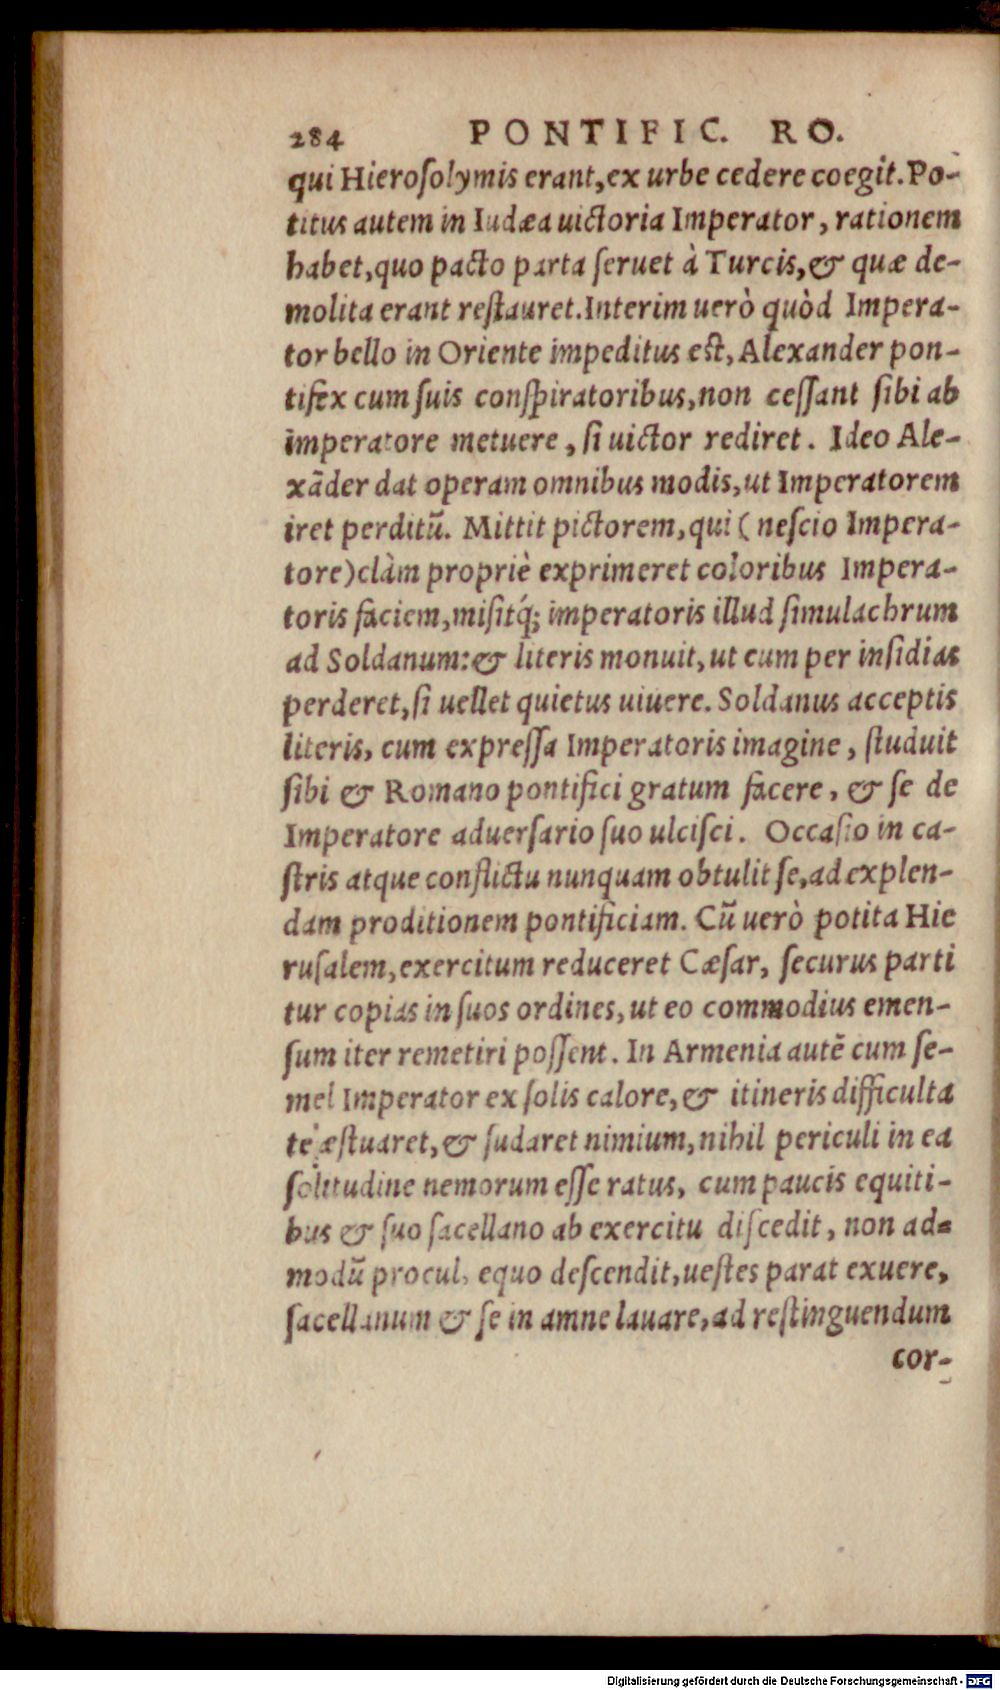 284 PONTIFIC. RO.
qui Hieroſolymis erant, ex urbe cedere coegit. Po-
titus autem in Iudæa uictoria Imperator, rationem
habet, quo pacto parta ſeruet à Turcis, & quæ de-
molita erant reſtauret. Interim uerò quòd Impera-
tor bello in Oriente impeditus est, Alexander pon-
tifex cum ſuis conſpiratoribus, non ceſſant ſibi ab
imperatore metuere, ſi uictor rediret. Ideo Ale-
xãder dat operam omnibus modis, ut Imperatorem
iret perditũ. Mittit pictorem, qui (neſcio Impera-
tore) clàm propriè exprimeret coloribus Impera-
toris faciem, miſitq́; imperatoris illud ſimulachrum
ad Soldanum: & literis monuit, ut eum per inſidias
perderet, ſi uellet quietus uiuere. Soldanus acceptis
literis, cum expreſſa Imperatoris imagine, ſtuduit
ſibi & Romano pontifici gratum facere, & ſe de
Imperatore aduerſario ſuo ulciſci. Occaſio in ca-
ſtris atque conflictu nunquam obtulit ſe, ad explen-
dam proditionem pontificiam. Cũ uerò potita Hie
ruſalem, exercitum reduceret Cæſar, ſecurus parti
tur copias in ſuos ordines, ut eo commodius emen-
ſum iter remetiri poſſent. In Armenia autẽ cum ſe-
mel Imperator ex ſolis calore, & itineris difficulta
te æſtuaret, & ſudaret nimium, nihil periculi in ea
ſolitudine nemorum eſſe ratus, cum paucis equiti-
bus & ſuo ſacellano ab exercitu diſcedit, non ad-
modũ procul, equo deſcendit, ueſtes parat exuere,
ſacellanum & ſe in amne lauare, ad reſtinguendum
cor-
Digitalisierung gefördert durch die Deutsche Forschungsgemeinschaft - DFG